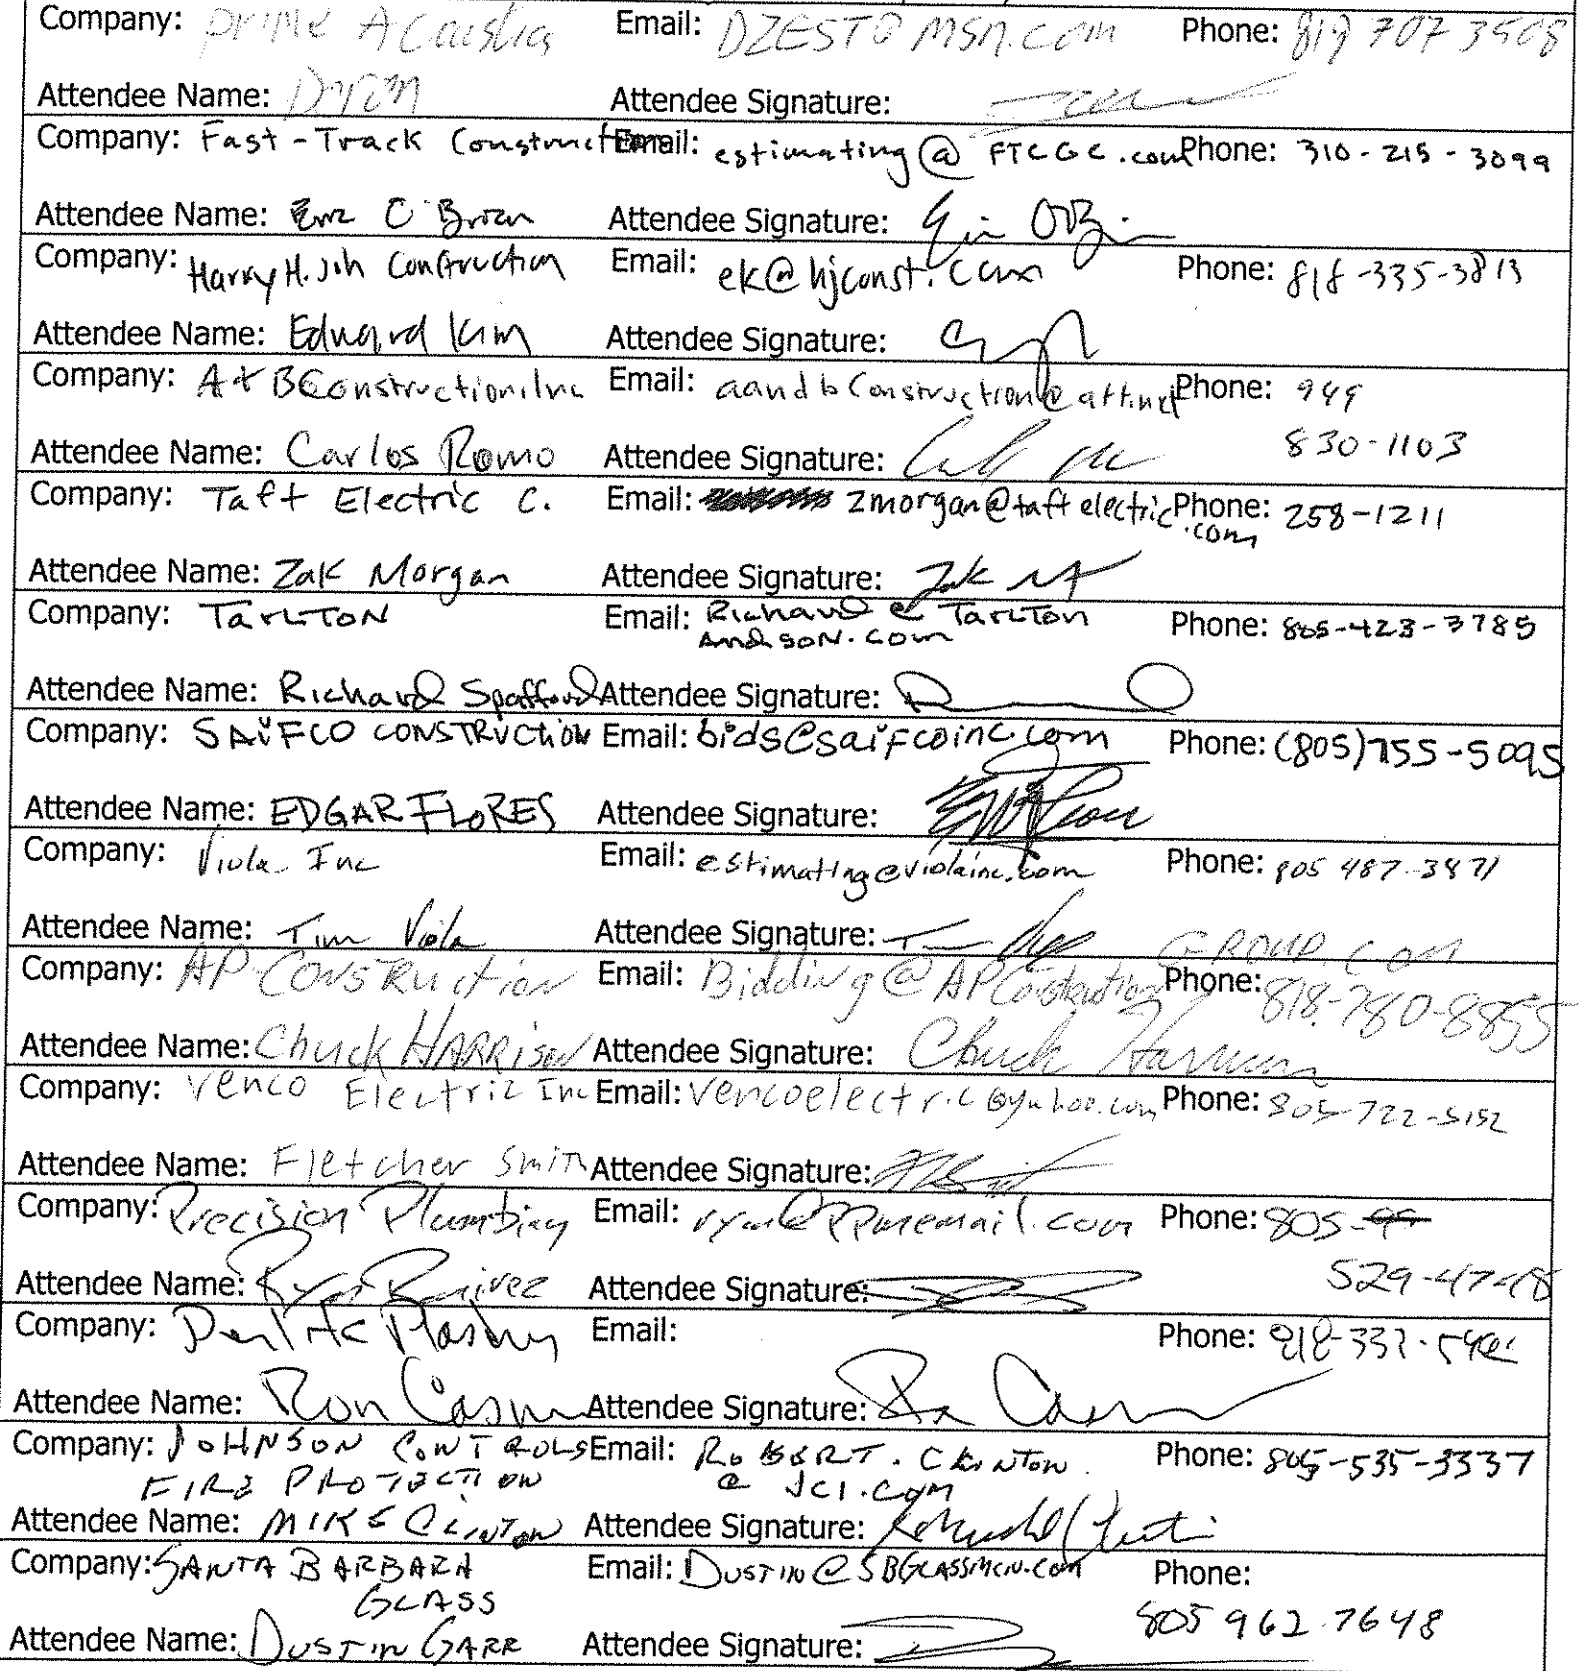 Company: Prime Acoustics Email: DZEST@MSN.COM Phone: 819 707 3508
Attendee Name: Attendee Signature:
Company: Fast-Track Construction Email: estimating@FTCGC.com Phone: 310-215-3099
Attendee Name: Eric O'Brien Attendee Signature:
Company: Harry H. Joh Construction Email: ek@hjconst.com Phone: 818-335-3813
Attendee Name: Edward Kim Attendee Signature:
Company: A+B Construction, Inc Email: aandbConstruction@att.net Phone: 949
830-1103
Attendee Name: Carlos Romo Attendee Signature:
Company: Taft Electric C. Email: zmorgan@taftelectric.com Phone: 258-1211
Attendee Name: Zak Morgan Attendee Signature:
Company: TARLTON Email: Richard@Tarlton Phone: 805-423-3785
AndSON.com
Attendee Name: Richard Spafford Attendee Signature:
Company: SAIFCO CONSTRUCTION Email: bids@saifcoinc.com Phone: (805)755-5095
Attendee Name: EDGAR FLORES Attendee Signature:
Company: Viola Inc Email: estimating@violainc.com Phone: 805 487-3871
Attendee Name: Tim Viola Attendee Signature:
GROUP.COM
Company: AP CONSTRuction Email: Bidding@APConstruction Phone: 818-780-8855
Attendee Name: Chuck HARRISON Attendee Signature: Chuck Harrison
Company: Venco Electric Inc Email: Vencoelectric@yahoo.com Phone: 805-722-5152
Attendee Name: Fletcher Smith Attendee Signature:
Company: Precision Plumbing Email: ryan@ppmemail.com Phone: 805-
529-4748
Attendee Name: Ryan Ramirez Attendee Signature:
Company: Email: Phone:
Attendee Name: Ron Attendee Signature:
Company: JOHNSON CONTROLS Email: ROBERT.CLINTON Phone: 805-535-3337
FIRE PROTECTION @JCI.COM
Attendee Name: MIKE CLINTON Attendee Signature:
Company: SANTA BARBARA Email: DUSTIN@SBGLASSMCN.COM Phone:
GLASS 805 962.7648
Attendee Name: DUSTIN GARR Attendee Signature: